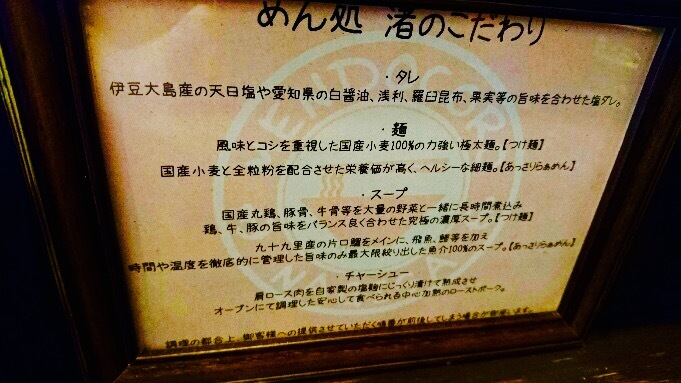 めん処 渚のこだわり
・タレ
伊豆大島産の天日塩や愛知県の白醤油、浅利、羅臼昆布、果実等の旨味を合わせた塩ダレ。
・麺
風味とコシを重視した国産小麦100%の力強い極太麺。【つけ麺】
国産小麦と全粒粉を配合させた栄養価が高く、ヘルシーな細麺。【あっさりらぁめん】
・スープ
国産丸鶏、豚骨、牛骨等を大量の野菜と一緒に長時間煮込み
鶏、牛、豚の旨味をバランス良く合わせた究極の濃厚スープ。【つけ麺】
九十九里産の片口鰯をメインに、飛魚、鯖等を加え
時間や温度を徹底的に管理した旨味のみ最大限絞り出した魚介100%のスープ。【あっさらぁめん】
・チャーシュー
肩ロース肉を自家製の塩麹にじっくり漬けて熟成させ
オーブンにて調理した安心して食べられる中心加熱のローストポーク。
調理の都合上、御客様への提供させていただく順番が前後してしまう場合が御座います。